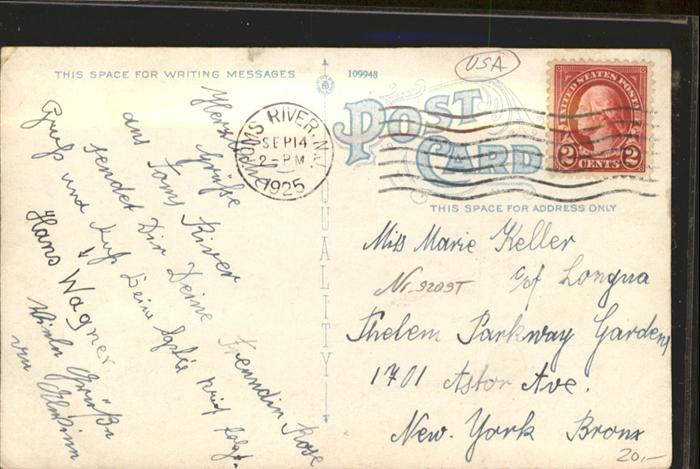 THIS SPACE FOR WRITING MESSAGES
109948
USA
POST CARD
UNITED STATES POSTAGE
2 CENTS 2
MS RIVER, N.J.
SEP 14
2- PM
1925
THIS SPACE FOR ADDRESS ONLY
QUALITY
Herzliche
Grüße
aus Toms River
sendet Dir Deine Freundin Rose
Gruß und Kuß Deine Sophie Brief folgt.
Hans Wagner
Viele Grüße
von
Miss Marie Keller
Nr. 9209T
c/of Longua
Thelem Parkway Gardens
1701 Astor Ave.
New-York Bronx
20,-